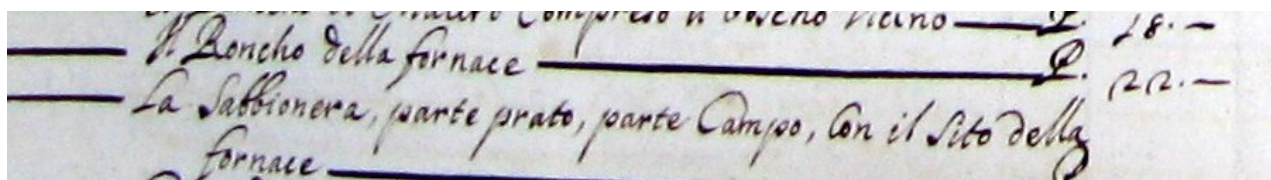 Compreso il boscho vicino P. 18.—
Il Roncho della fornace P. 22.—
La Sabbionera, parte prato, parte Campo, Con il Sito della
fornace